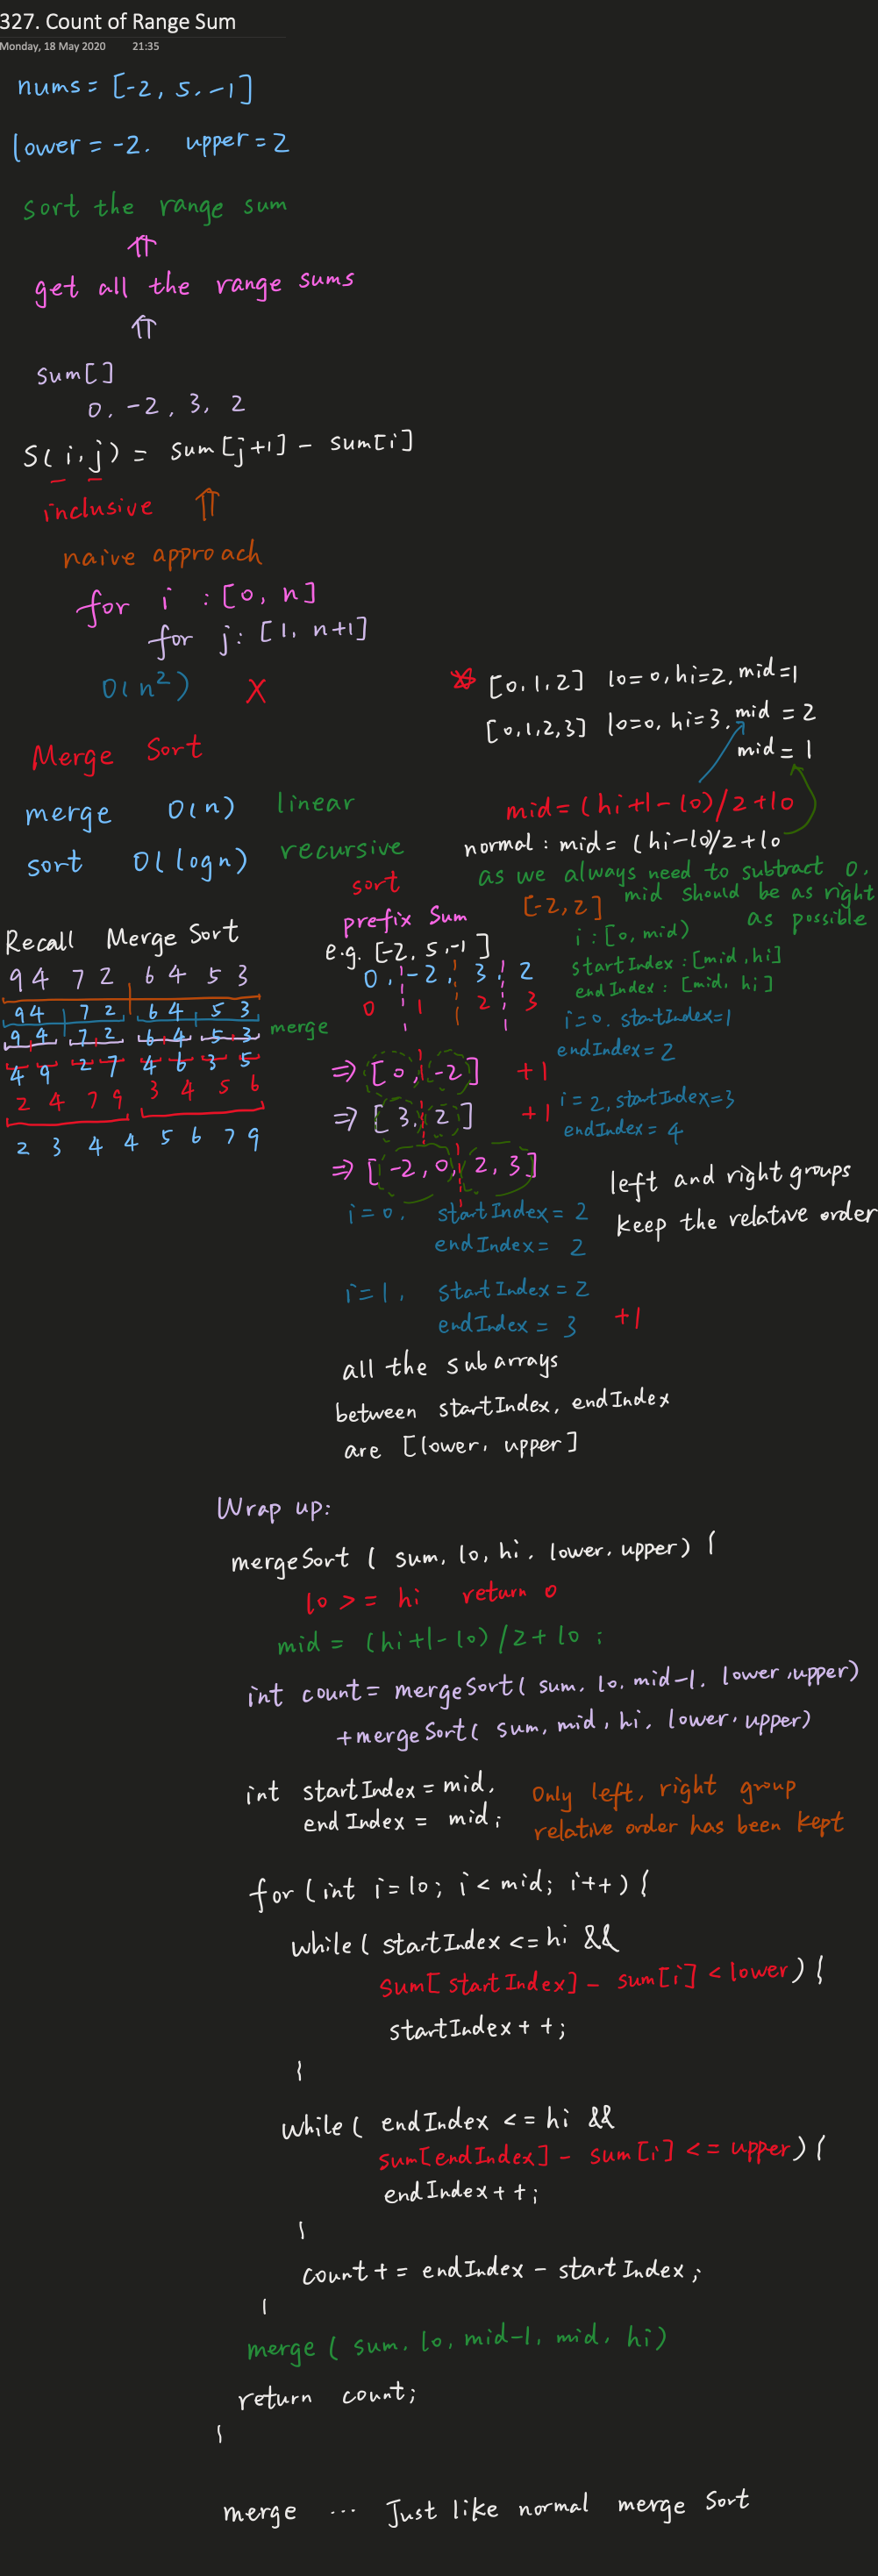 327. Count of Range Sum
Monday, 18 May 2020 21:35
nums = [-2, 5, -1]
lower = -2. upper = 2
sort the range sum
⇑
get all the range sums
⇑
sum[]
0, -2, 3, 2
S(i,j) = sum[j+1] - sum[i]
inclusive ⇑
naive approach
for i : [0, n]
for j: [1, n+1]
O(n²) X
Merge Sort
merge O(n) linear
sort O(logn) recursive
[0,1,2] lo=0, hi=2, mid=1
[0,1,2,3] lo=0, hi=3, mid = 2
mid = 1
mid = (hi+1-lo)/2+lo
normal : mid = (hi-lo)/2+lo
as we always need to subtract 0,
mid should be as right
as possible
Recall Merge Sort
9 4 7 2 6 4 5 3
9 4 7 2 6 4 5 3
9 4 7 2 6 4 5 3 merge
4 9 2 7 4 6 3 5
2 4 7 9 3 4 5 6
2 3 4 4 5 6 7 9
sort
prefix Sum [-2,2]
e.g. [-2, 5, -1]
0, -2, 3, 2
0 1 2 3
i : [0, mid)
startIndex : [mid, hi]
endIndex : [mid, hi]
i=0. startIndex=1
endIndex = 2
⇒ [0, -2] +1
i=2, startIndex=3
endIndex = 4
⇒ [3, 2] +1
⇒ [-2, 0, 2, 3]
left and right groups
keep the relative order
i=0, startIndex = 2
endIndex = 2
i=1, startIndex = 2
endIndex = 3 +1
all the subarrays
between startIndex, endIndex
are [lower, upper]
Wrap up:
mergeSort ( sum, lo, hi, lower, upper) {
lo >= hi return 0
mid = (hi+1-lo)/2+lo ;
int count= mergeSort( sum, lo, mid-1, lower, upper)
+mergeSort( sum, mid, hi, lower, upper)
int startIndex = mid,
endIndex = mid;
Only left, right group
relative order has been kept
for (int i=lo; i < mid; i++) {
while ( startIndex <= hi &&
sum[startIndex] - sum[i] < lower) {
startIndex++;
}
while ( endIndex <= hi &&
sum[endIndex] - sum[i] <= upper) {
endIndex++;
}
count += endIndex - startIndex;
}
merge ( sum, lo, mid-1, mid, hi)
return count;
}
merge ... Just like normal merge sort